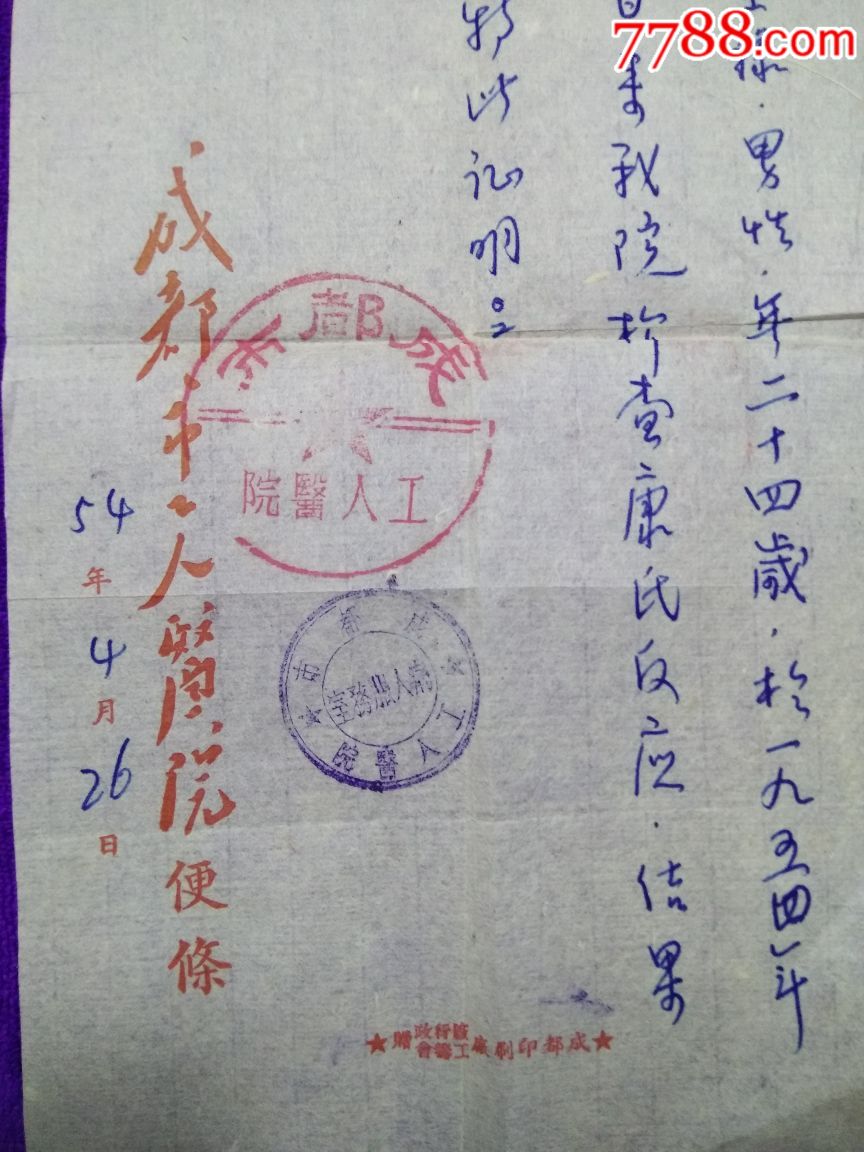 7788.com
樣．男性．年二十四歲．於一九五四年
日来我院检查康氏反应．结果
特此证明
成都市
工人醫院
成都市
工人醫院
病人服務室
成都市工人醫院便條
54年4月26日
★成都印刷廠
行政
工會
贈★